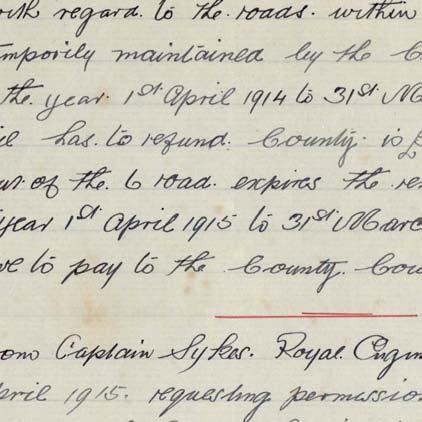 with regard. to the. roads. within
temporily maintained by the
the. year. 1st April 1914 to 31st
has. to refund. County. is £
of the. 6 road. expires the
year 1st April 1915 to 31st Marc
to pay to the County. Cou
om Captain Sykes. Royal. Engin
April 1915. requesting permission